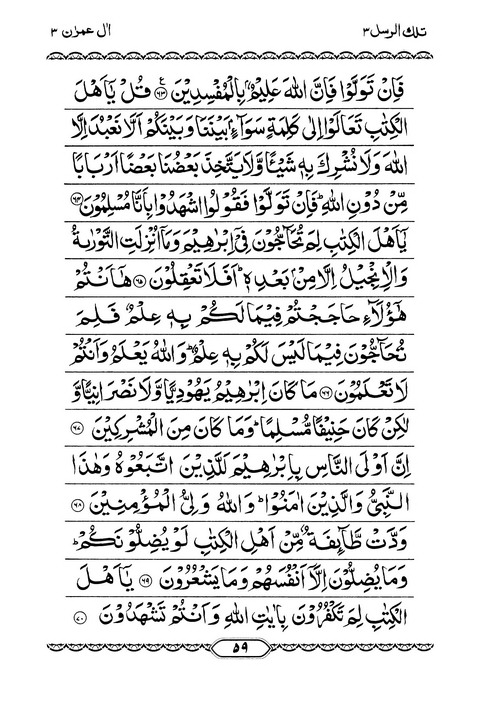 تلك الرسل ٣ اٰل عمرٰن ٣
فَاِنْ تَوَلَّوْا فَاِنَّ اللّٰهَ عَلِيْمٌۢ بِالْمُفْسِدِيْنَ ﴿٦٣﴾ ع قُلْ يٰۤاَهْلَ
الْكِتٰبِ تَعَالَوْا اِلٰى كَلِمَةٍ سَوَآءٍۢ بَيْنَنَا وَبَيْنَكُمْ اَلَّا نَعْبُدَ اِلَّا
اللّٰهَ وَلَا نُشْرِكَ بِهٖ شَيْـًٔا وَّلَا يَتَّخِذَ بَعْضُنَا بَعْضًا اَرْبَابًا
مِّنْ دُوْنِ اللّٰهِ ؕ فَاِنْ تَوَلَّوْا فَقُوْلُوا اشْهَدُوْا بِاَنَّا مُسْلِمُوْنَ ﴿٦٤﴾
يٰۤاَهْلَ الْكِتٰبِ لِمَ تُحَآجُّوْنَ فِيْۤ اِبْرٰهِيْمَ وَمَاۤ اُنْزِلَتِ التَّوْرٰىةُ
وَالْاِنْجِيْلُ اِلَّا مِنْۢ بَعْدِهٖ ؕ اَفَلَا تَعْقِلُوْنَ ﴿٦٥﴾ هٰۤاَنْتُمْ
هٰۤؤُلَآءِ حَاجَجْتُمْ فِيْمَا لَكُمْ بِهٖ عِلْمٌ فَلِمَ
تُحَآجُّوْنَ فِيْمَا لَيْسَ لَكُمْ بِهٖ عِلْمٌ ؕ وَاللّٰهُ يَعْلَمُ وَاَنْتُمْ
لَا تَعْلَمُوْنَ ﴿٦٦﴾ مَا كَانَ اِبْرٰهِيْمُ يَهُوْدِيًّا وَّلَا نَصْرَانِيًّا وَّ
لٰكِنْ كَانَ حَنِيْفًا مُّسْلِمًا ؕ وَمَا كَانَ مِنَ الْمُشْرِكِيْنَ ﴿٦٧﴾
اِنَّ اَوْلَى النَّاسِ بِاِبْرٰهِيْمَ لَلَّذِيْنَ اتَّبَعُوْهُ وَهٰذَا
النَّبِيُّ وَالَّذِيْنَ اٰمَنُوْا ؕ وَاللّٰهُ وَلِيُّ الْمُؤْمِنِيْنَ ﴿٦٨﴾
وَدَّتْ طَّآىِٕفَةٌ مِّنْ اَهْلِ الْكِتٰبِ لَوْ يُضِلُّوْنَكُمْ ؕ
وَمَا يُضِلُّوْنَ اِلَّاۤ اَنْفُسَهُمْ وَمَا يَشْعُرُوْنَ ﴿٦٩﴾ يٰۤاَهْلَ
الْكِتٰبِ لِمَ تَكْفُرُوْنَ بِاٰيٰتِ اللّٰهِ وَاَنْتُمْ تَشْهَدُوْنَ ﴿٧٠﴾
٥٩